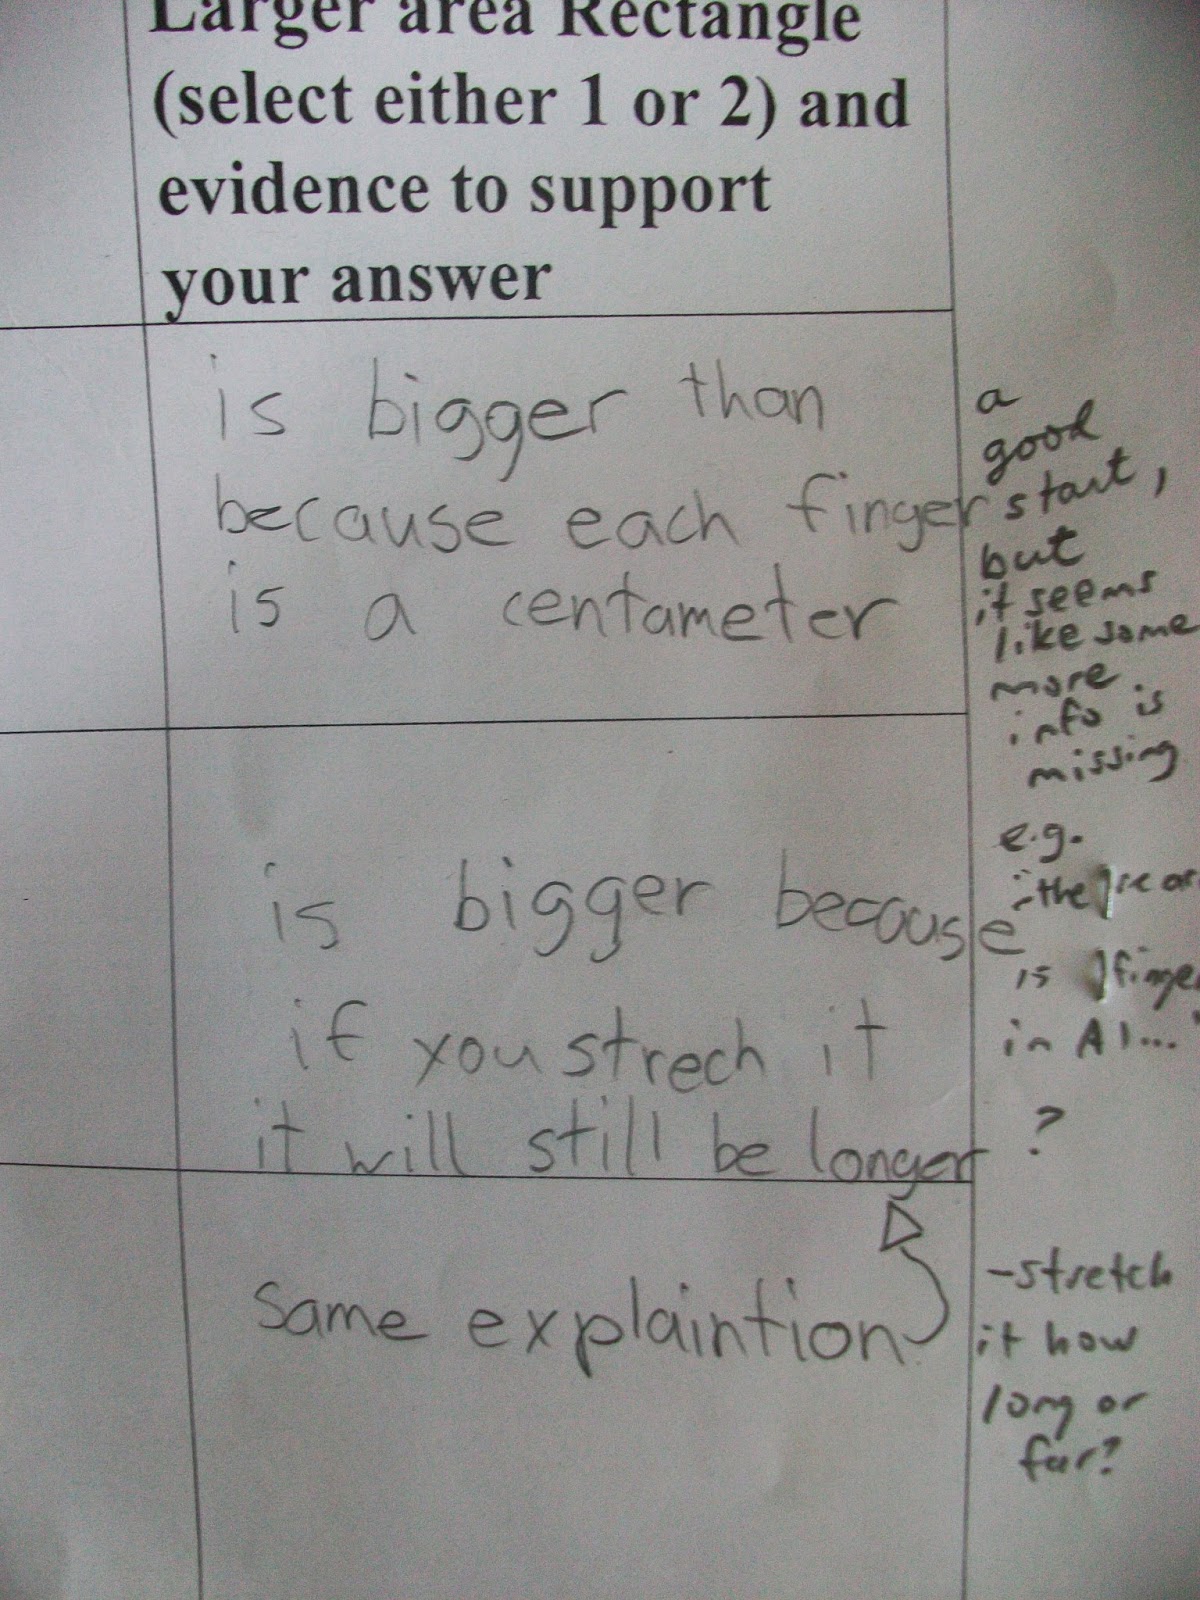 Larger area Rectangle
(select either 1 or 2) and
evidence to support
your answer
is bigger than
because each finger
is a centameter
a
good
start,
but
it seems
like some
more
info is
missing
e.g.
is bigger because
if you strech it
it will still be longer
the
is finge
in A1..."
?
same explaintion
-stretch
it how
long or
far?